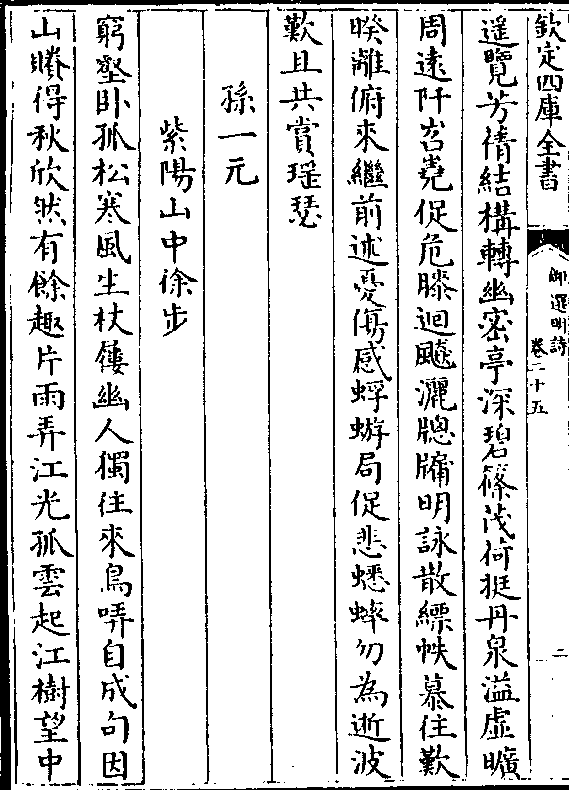 欽定四庫全書
御選明詩
卷二十五
二
遥覽芳倩結構轉幽密亭深碧篠茂荷挺丹泉溢虛曠
周逺阡岧嶤促危膝迴飇灑牎牗明詠散縹帙慕住歎
暌離俯來繼前述憂傷感蜉蝣局促悲蟋蟀勿為逝波
歎且共賞瑶瑟
孫一元
紫陽山中徐步
窮壑卧孤松寒風生杖屨幽人獨往來鳥哢自成句因
山賸得秋欣然有餘趣片雨弄江光孤雲起江樹望中